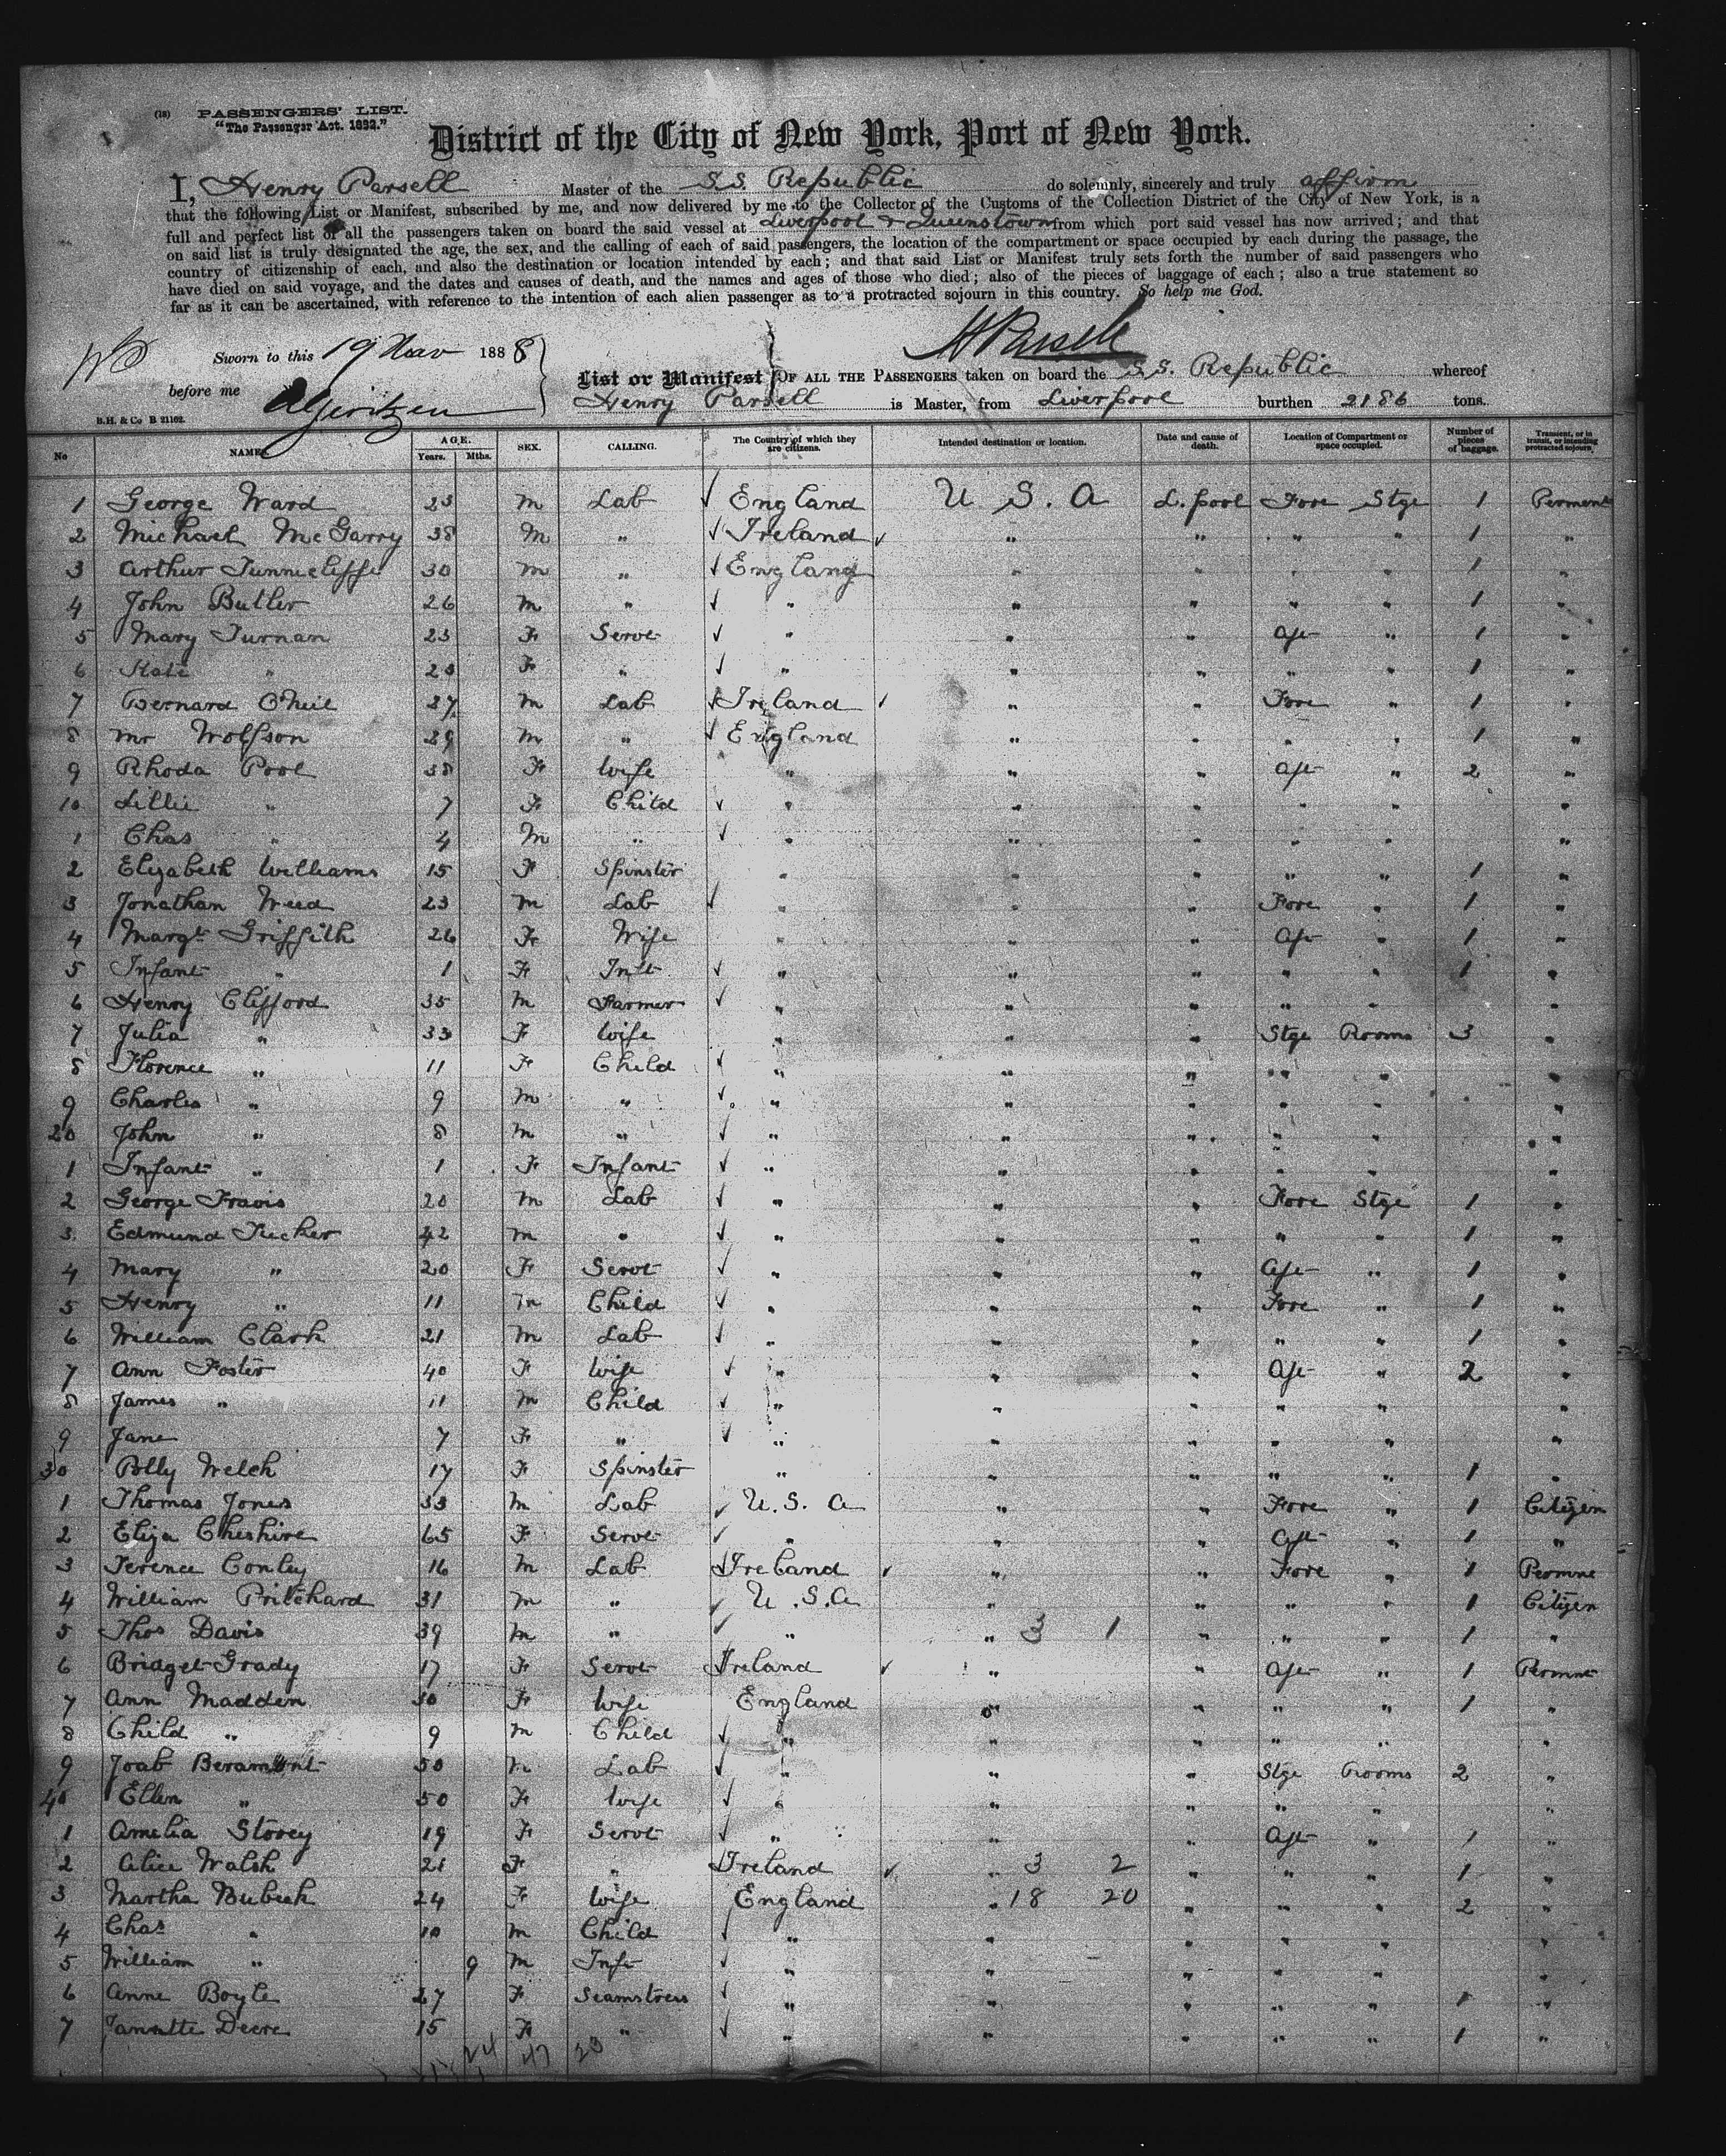 (18) PASSENGERS' LIST.
"The Passenger Act. 1882."
District of the City of New York, Port of New York.
I, Henry Parsell Master of the S.S. Republic do solemnly, sincerely and truly affirm
that the following List or Manifest, subscribed by me, and now delivered by me to the Collector of the Customs of the Collection District of the City of New York, is a
full and perfect list of all the passengers taken on board the said vessel at Liverpool & Queenstown from which port said vessel has now arrived; and that
on said list is truly designated the age, the sex, and the calling of each of said passengers, the location of the compartment or space occupied by each during the passage, the
country of citizenship of each, and also the destination or location intended by each; and that said List or Manifest truly sets forth the number of said passengers who
have died on said voyage, and the dates and causes of death, and the names and ages of those who died; also of the pieces of baggage of each; also a true statement so
far as it can be ascertained, with reference to the intention of each alien passenger as to a protracted sojourn in this country. So help me God.
Sworn to this 19 Nov 1888
H Parsell
before me
List or Manifest OF ALL THE PASSENGERS taken on board the S.S. Republic whereof
Henry Parsell is Master, from Liverpool burthen 2186 tons.
B.H. & Co B 21162.
No NAMES AGE. Years. Mths. SEX. CALLING. The Country of which they are citizens. Intended destination or location. Date and cause of death. Location of Compartment or space occupied. Number of pieces of baggage. Transient, or in transit, or intending protracted sojourn.
1 George Ward 23 M Lab England U S. A L.pool Fore Stge 1 Perment
2 Michael McGarry 38 M " Ireland " " " " 1 "
3 Arthur Tunnicliffe 30 M " England " " " " 1 "
4 John Butler 26 M " " " " " " 1 "
5 Mary Turnan 23 F Servt " " " Aft " 1 "
6 Kate " 20 F " " " " " " 1 "
7 Bernard O'Neil 37 M Lab Ireland " " Fore " 1 "
8 Mr Wolfson 29 M " England " " " " 1 "
9 Rhoda Pool 38 F Wife " " " Aft " 2 "
10 Lillie " 7 F Child " " " " " "
1 Chas " 4 M " " " " " " "
2 Elizabeth Williams 15 F Spinster " " " " " 1 "
3 Jonathan Weed 23 M Lab " " " Fore " 1 "
4 Margt Griffith 26 F Wife " " " Aft " 1 "
5 Infant " 1 F Inft " " " " " 1 "
6 Henry Clifford 35 M Farmer " " " " " "
7 Julia " 33 F Wife " " " Stge Rooms 3 "
8 Florence " 11 F Child " " " " " "
9 Charles " 9 M " " " " " " "
20 John " 8 M " " " " " " "
1 Infant " 1 F Infant " " " " " "
2 George Travis 20 M Lab " " " Fore Stge 1 "
3 Edmund Tucker 42 M " " " " " " 1 "
4 Mary " 20 F Servt " " " Aft " 1 "
5 Henry " 11 M Child " " " Fore " 1 "
6 William Clark 21 M Lab " " " " " 1 "
7 Ann Foster 40 F Wife " " " Aft " 2 "
8 James " 11 M Child " " " " " "
9 Jane 7 F " " " " " " "
30 Polly Welch 17 F Spinster " " " " " 1 "
1 Thomas Jones 33 M Lab U.S. A " " Fore " 1 Citizen
2 Eliza Cheshire 65 F Servt " " " Aft " 1 "
3 Terence Conley 16 M Lab Ireland " " Fore " 1 Permne
4 William Pritchard 31 M " U.S.A " " " " 1 Citizen
5 Thos Davis 39 M " " " 3 1 " " " 1 "
6 Bridget Grady 17 F Servt Ireland " " Aft " 1 Permnt
7 Ann Madden 30 F Wife England " " " " 1 "
8 Child " 9 M Child " " " " " "
9 Joab 50 M Lab " " " Stge Rooms 2 "
40 Ellen " 50 F Wife " " " " " "
1 Amelia Storey 19 F Servt " " " Aft " 1 "
2 Alice Walsh 21 F " Ireland " 3 2 " " " 1 "
3 Martha Bubeck 24 F Wife England " 18 20 " " " 2 "
4 Chas " 10 M Child " " " " " "
5 William " 9 M Inft " " " " " "
6 Anne Boyle 27 F Seamstress " " " " " 1 "
7 Janette Deere 15 F " " " " " " 1 "
24 47 23